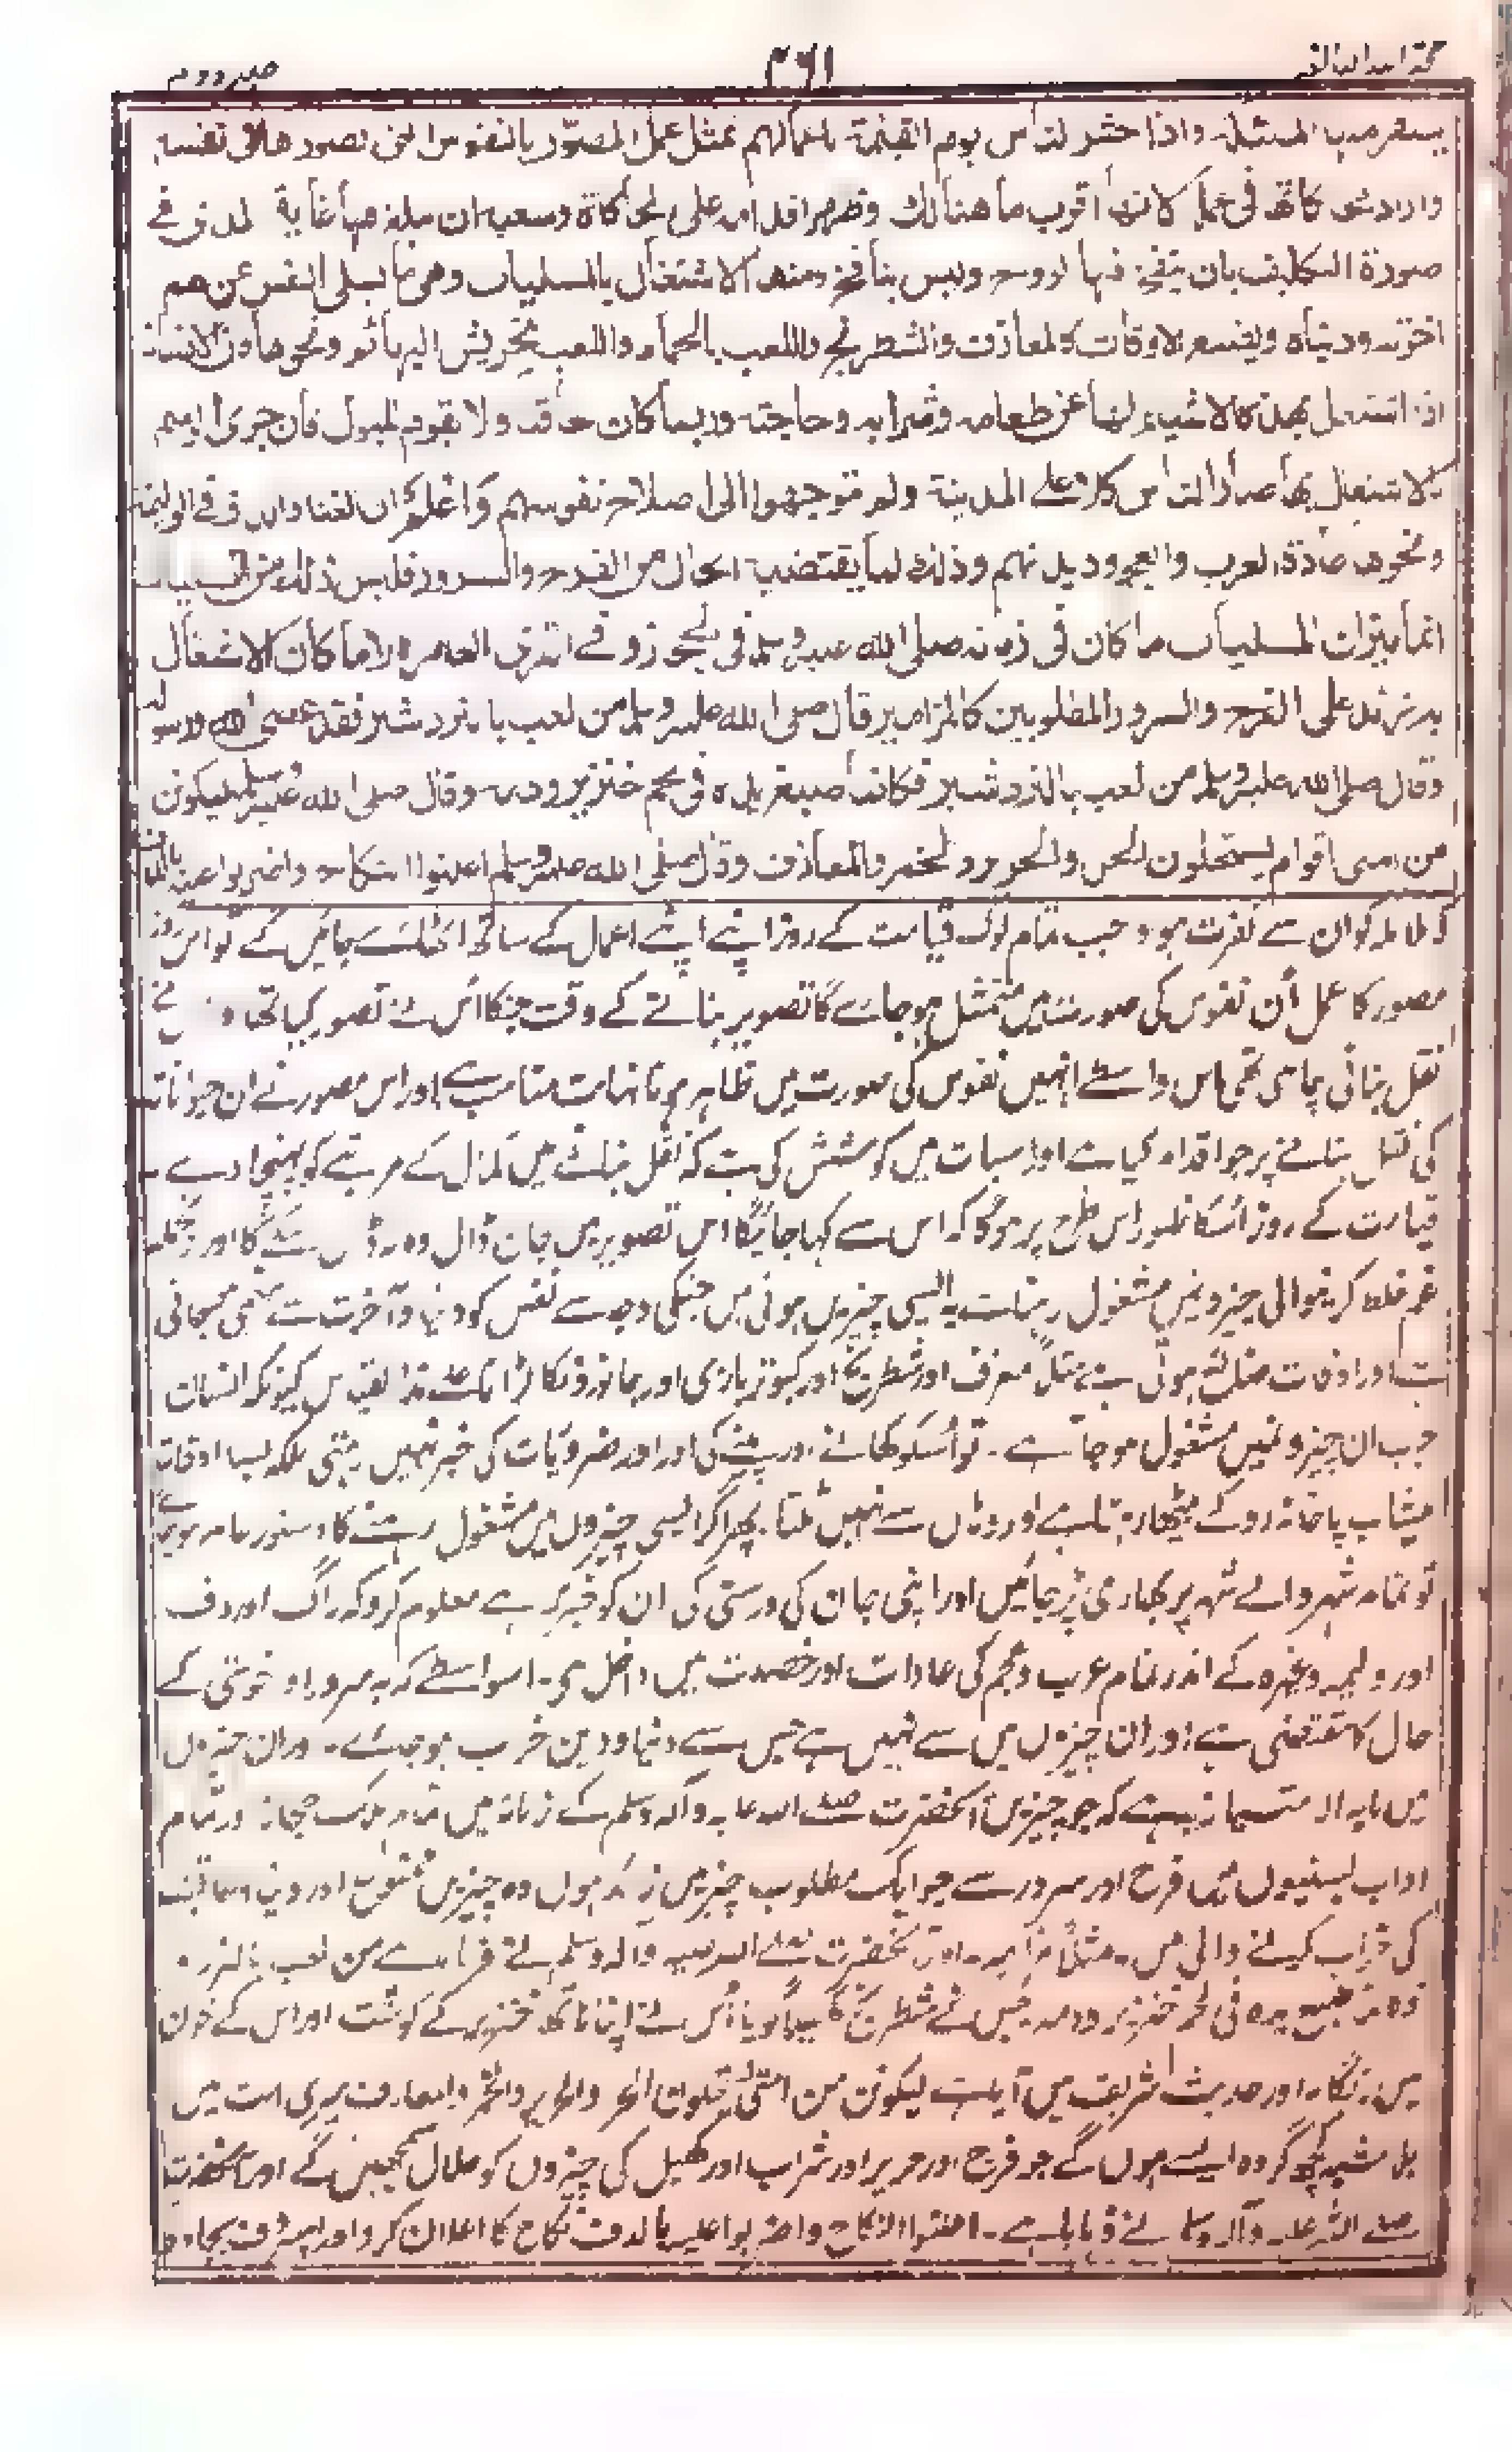 حجۃ اللہ البالغہ
۴۶۱
جلد دوم
واذا حشر الناس يوم القيمة باعمالهم تمثل عمل المصور بالنفوس التي تصورها في نفسه
واراد محاكاتها في عمله لانها اقرب ما هنالك وظهر اقدامه على المحاكاة وسعيه ان يبلغ فيها غاية المدى في
صورة التكليف بان ينفخ فيها الروح وليس بنافخ ومنها الاشتغال بالمسليات وهي ما يسلي النفس عن هم
اخرته ودنياه ويضيع الاوقات كالمعازف والشطرنج واللعب بالحمام واللعب بتحريش البهائم ونحوها فان الانسان
اذا اشتغل بهذه الاشياء لها عن طعامه وشرابه وحاجته وربما كان حاقنا ولا يقوم للبول فان جرى الرسم
بالاشتغال بها صار الناس كلا على المدينة ولم يتوجهوا الى اصلاح نفوسهم واعلم ان الغناء والدف في الوليمة
ونحوها عادة العرب والعجم وديدنهم وذلك لما يقتضيه الحال من الفرح والسرور فليس ذلك من المسليات
انما ميزان المسليات ما كان في زمانه صلى الله عليه وسلم في الحجاز وفي القرى العامرة الاما كان الاشتغال
به زائدا على الفرح والسرور المطلوبين كالمزامير قال صلى الله عليه وسلم من لعب بالنردشير فقد عصى الله ورسوله
وقال صلى الله عليه وسلم من لعب بالنردشير فكانما صبغ يده في لحم خنزير ودمه وقال صلى الله عليه وسلم ليكونن
من امتى اقوام يستحلون الحر والحرير والخمر والمعازف وقال صلى الله عليه وسلم اعلنوا النكاح واضربوا عليه بالدف
کو ان سے نفرت ہو۔ جب تمام لوگ قیامت کے روز اپنے اپنے اعمال کے ساتھ اٹھائے جائیں گے تو اس روز
مصور کا عمل ان نفوس کی صورت میں متمثل ہو جائے گا تصویر بنانے کے وقت جنکا اس نے تصور کیا تھا
نقل بنانی چاہی تھی اس واسطے انہیں نفوس کی صورت میں ظاہر ہونا نہایت مناسب ہے اور اس مصور نے ان حیوانات
کی نقل بنانے پر جو اقدام کیا ہے اور اس بات میں کوشش کی ہے کہ نقل بنانے میں کمال کے مرتبے کو پہنچا دے۔
قیامت کے روز اسکا ظہور اس طرح پر ہوگا کہ اس سے کہا جائیگا اس تصویر میں جان ڈال وہ نہ ڈال سکے گا اور
غم غلط کرنیوالی چیزونمیں مشغول رہنا ہے یہ ایسی چیزیں ہوتی ہیں جنکی وجہ سے نفس کو دنیا و آخرت سے
اور اوقات ضائع ہوتی ہے مثلاً معزف اور شطرنج اور کبوتر بازی اور جانورونکا لڑانا کیونکہ انسان
جب ان چیزونمیں مشغول ہو جاتا ہے۔ تو اسکو کھانے اور پینے کی اور اور ضروریات کی خبر نہیں رہتی بلکہ بسا اوقات
پیشاب پاخانہ روکے بیٹھا رہتا ہے اور وہاں سے نہیں ٹلتا۔ پھر اگر ایسی چیزوں میں مشغول رہنے کا دستور عام ہو جائے
تو تمام شہر والے شہر پر بھاری پڑ جائیں اور اپنی جان کی درستی کی ان کو خبر نہ رہے معلوم کرو کہ راگ اور دف
اور ولیمہ وغیرہ کے اندر تمام عرب و عجم کی عادات اور خصلت میں داخل ہے۔ اسواسطے کہ یہ سرور اور خوشی کے
حال کا مقتضی ہے اور ان چیزوں میں سے نہیں ہے جس سے دنیا و دین خراب ہو جائے۔ اور ان چیزوں
میں مابہ الامتیاز یہ ہے کہ جو چیزیں آنحضرت صلے اللہ علیہ وآلہ وسلم کے زمانہ میں تمام ملک حجاز اور تمام
بستیوں میں فرح اور سرور سے جو ایک مطلوب چیز ہیں زائد ہوں وہ چیزیں ممنوع اور دنیا و عاقبت
کی خراب کرنے والی ہیں۔ مثلاً مزامیر۔ اور آنحضرت صلے اللہ علیہ وآلہ وسلم نے فرمایا ہے من لعب بالنرد
فی لحم خنزیر ودمہ جس نے شطرنج کھیلا گویا اس نے اپنا ہاتھ خنزیر کے گوشت اور اس کے خون
میں رنگا۔ اور حدیث شریف میں آیا ہے لیکونن من امتی یستحلون الحر والحریر والخمر والمعازف میری امت میں
بلا شبہ کچھ گروہ ایسے ہوں گے جو فرج اور حریر اور شراب اور کھیل کی چیزوں کو حلال سمجھیں گے اور آنحضرت
صلے اللہ علیہ وآلہ وسلم نے فرمایا ہے۔ اعلنوا النکاح واضربوا علیہ بالدف نکاح کا اعلان کرو اور اسپر دف بجاؤ